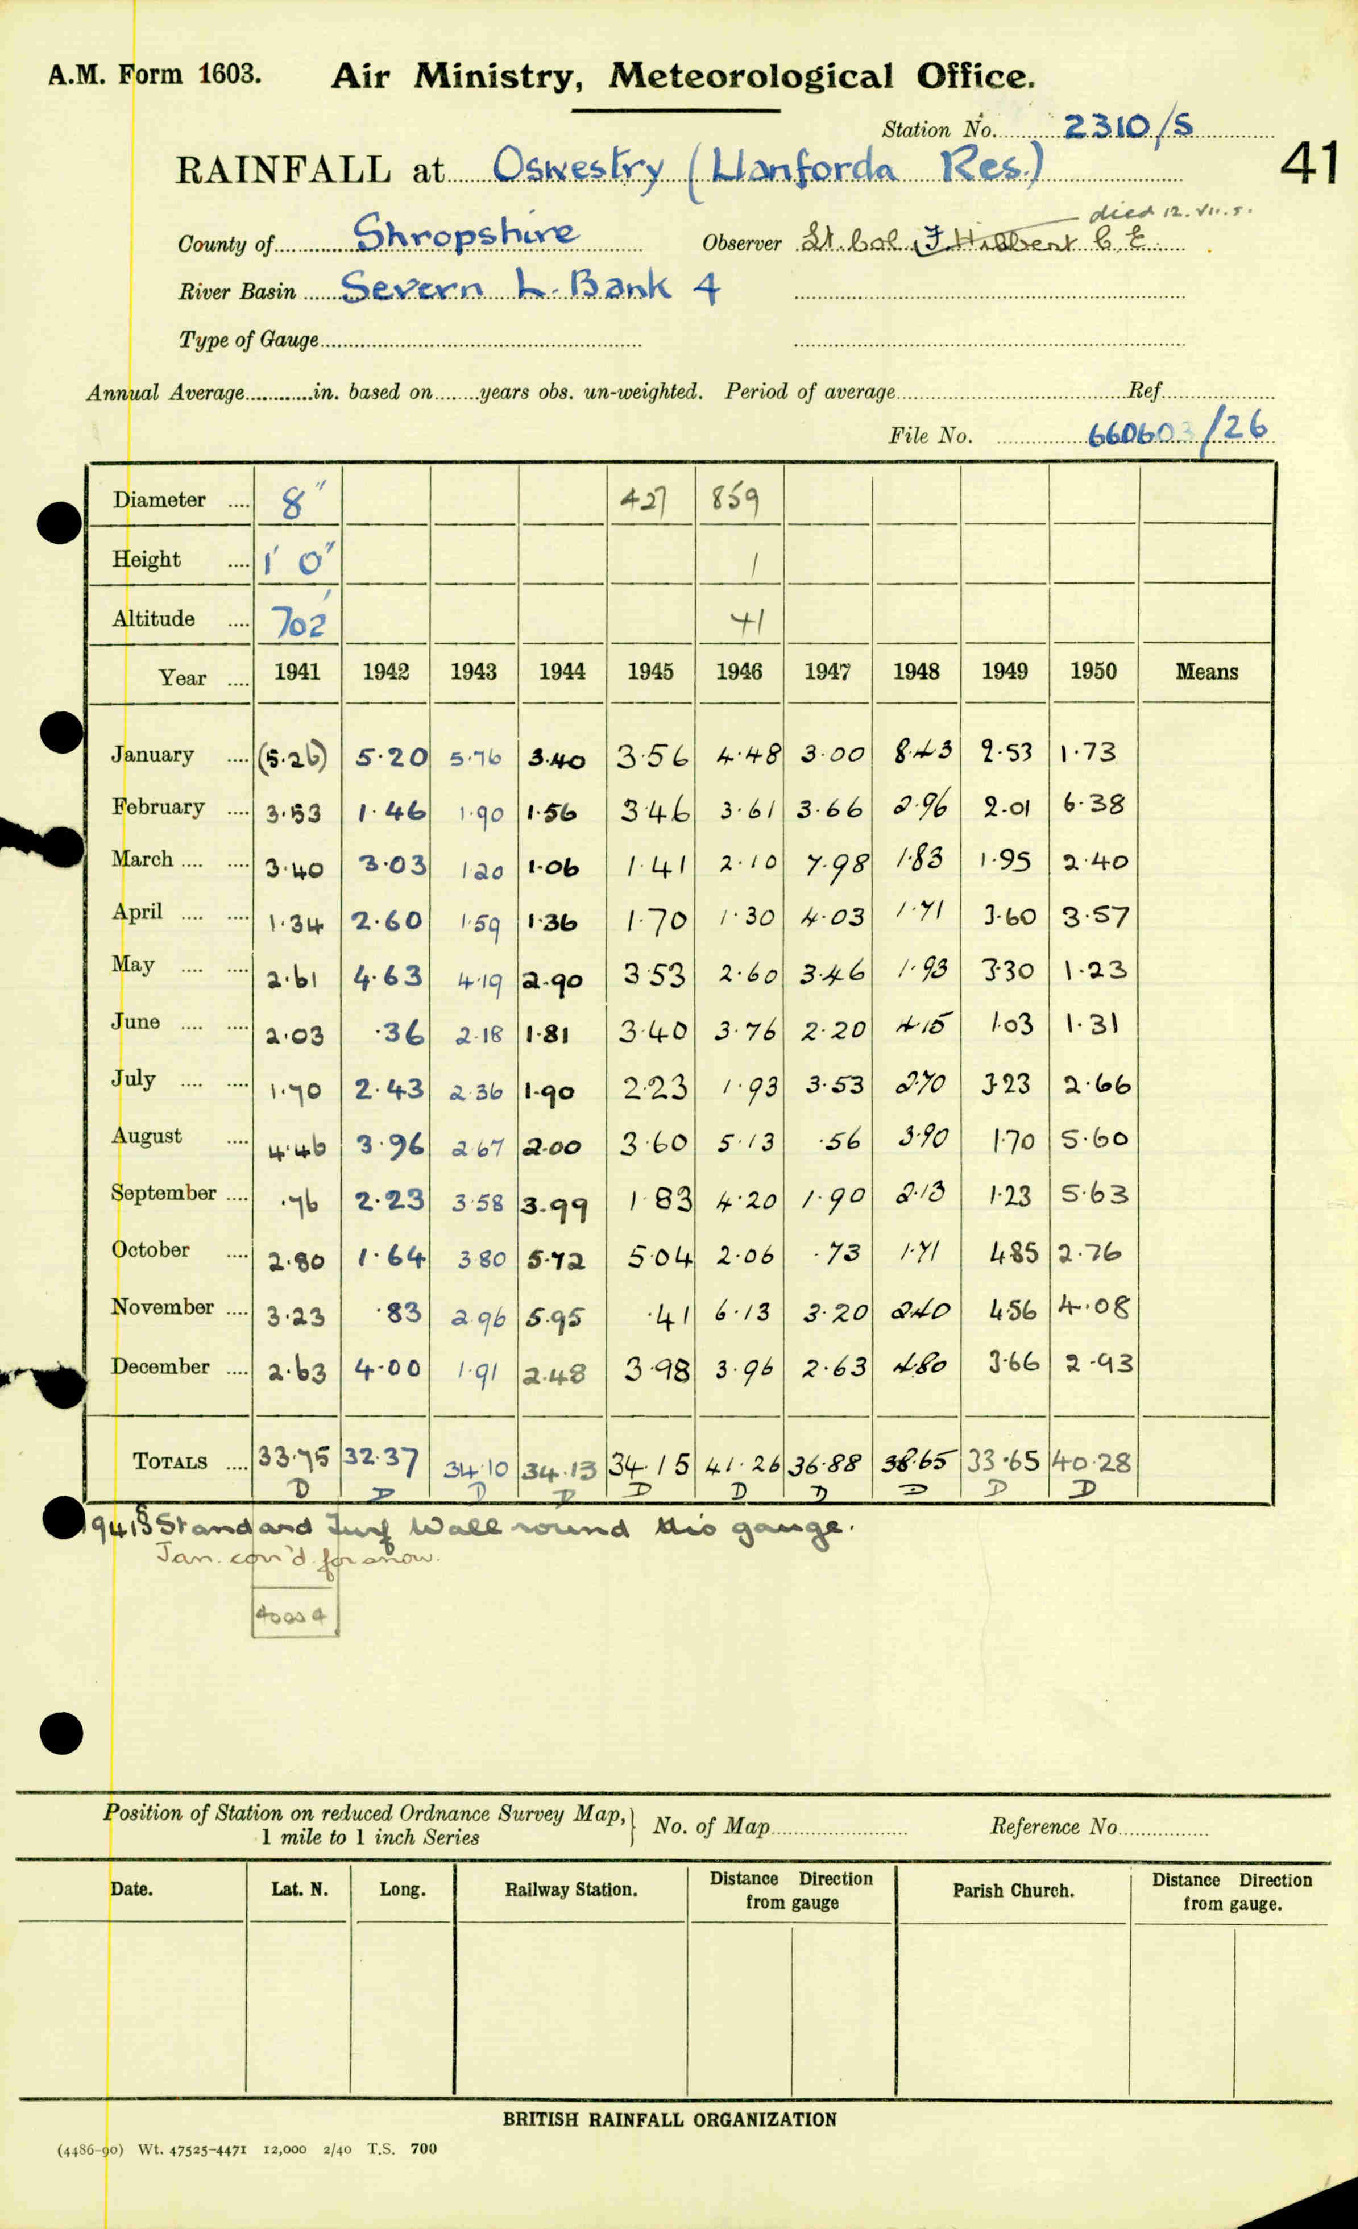 A.M. Form 1603. Air Ministry, Meteorological Office.
Station No. 2310/S
RAINFALL at Oswestry (Llanforda Res.) 41
died 12.VII.5.
County of Shropshire Observer Lt. Col. F. Hibbert C.E.
River Basin Severn L. Bank 4
Type of Gauge
Annual Average in. based on years obs. un-weighted. Period of average Ref.
File No. 660603/26
Diameter .... 8" 427 859
Height .... 1' 0" 1
Altitude .... 702' 41
Year .... 1941 1942 1943 1944 1945 1946 1947 1948 1949 1950 Means
January .... (5.26) 5.20 5.76 3.40 3.56 4.48 3.00 8.43 2.53 1.73
February .... 3.53 1.46 1.90 1.56 3.46 3.61 3.66 2.96 2.01 6.38
March .... .... 3.40 3.03 1.20 1.06 1.41 2.10 7.98 1.83 1.95 2.40
April .... .... 1.34 2.60 1.59 1.36 1.70 1.30 4.03 1.71 3.60 3.57
May .... .... 2.61 4.63 4.19 2.90 3.53 2.60 3.46 1.93 3.30 1.23
June .... .... 2.03 .36 2.18 1.81 3.40 3.76 2.20 4.15 1.03 1.31
July .... .... 1.70 2.43 2.36 1.90 2.23 1.93 3.53 2.70 3.23 2.66
August .... 4.46 3.96 2.67 2.00 3.60 5.13 .56 3.90 1.70 5.60
September .... .76 2.23 3.58 3.99 1.83 4.20 1.90 2.13 1.23 5.63
October .... 2.80 1.64 3.80 5.72 5.04 2.06 .73 1.71 4.85 2.76
November .... 3.23 .83 2.96 5.95 .41 6.13 3.20 2.40 4.56 4.08
December .... 2.63 4.00 1.91 2.48 3.98 3.96 2.63 4.80 3.66 2.93
TOTALS .... 33.75 32.37 34.10 34.13 34.15 41.26 36.88 38.65 33.65 40.28
D D D D D D D D D D
1941 § Standard Turf Wall round this gauge.
Jan. corr'd. for snow.
Position of Station on reduced Ordnance Survey Map, No. of Map Reference No.
1 mile to 1 inch Series
Date. Lat. N. Long. Railway Station. Distance Direction from gauge Parish Church. Distance Direction from gauge.
BRITISH RAINFALL ORGANIZATION
(4486-90) Wt. 47525-4471 12,000 2/40 T.S. 700